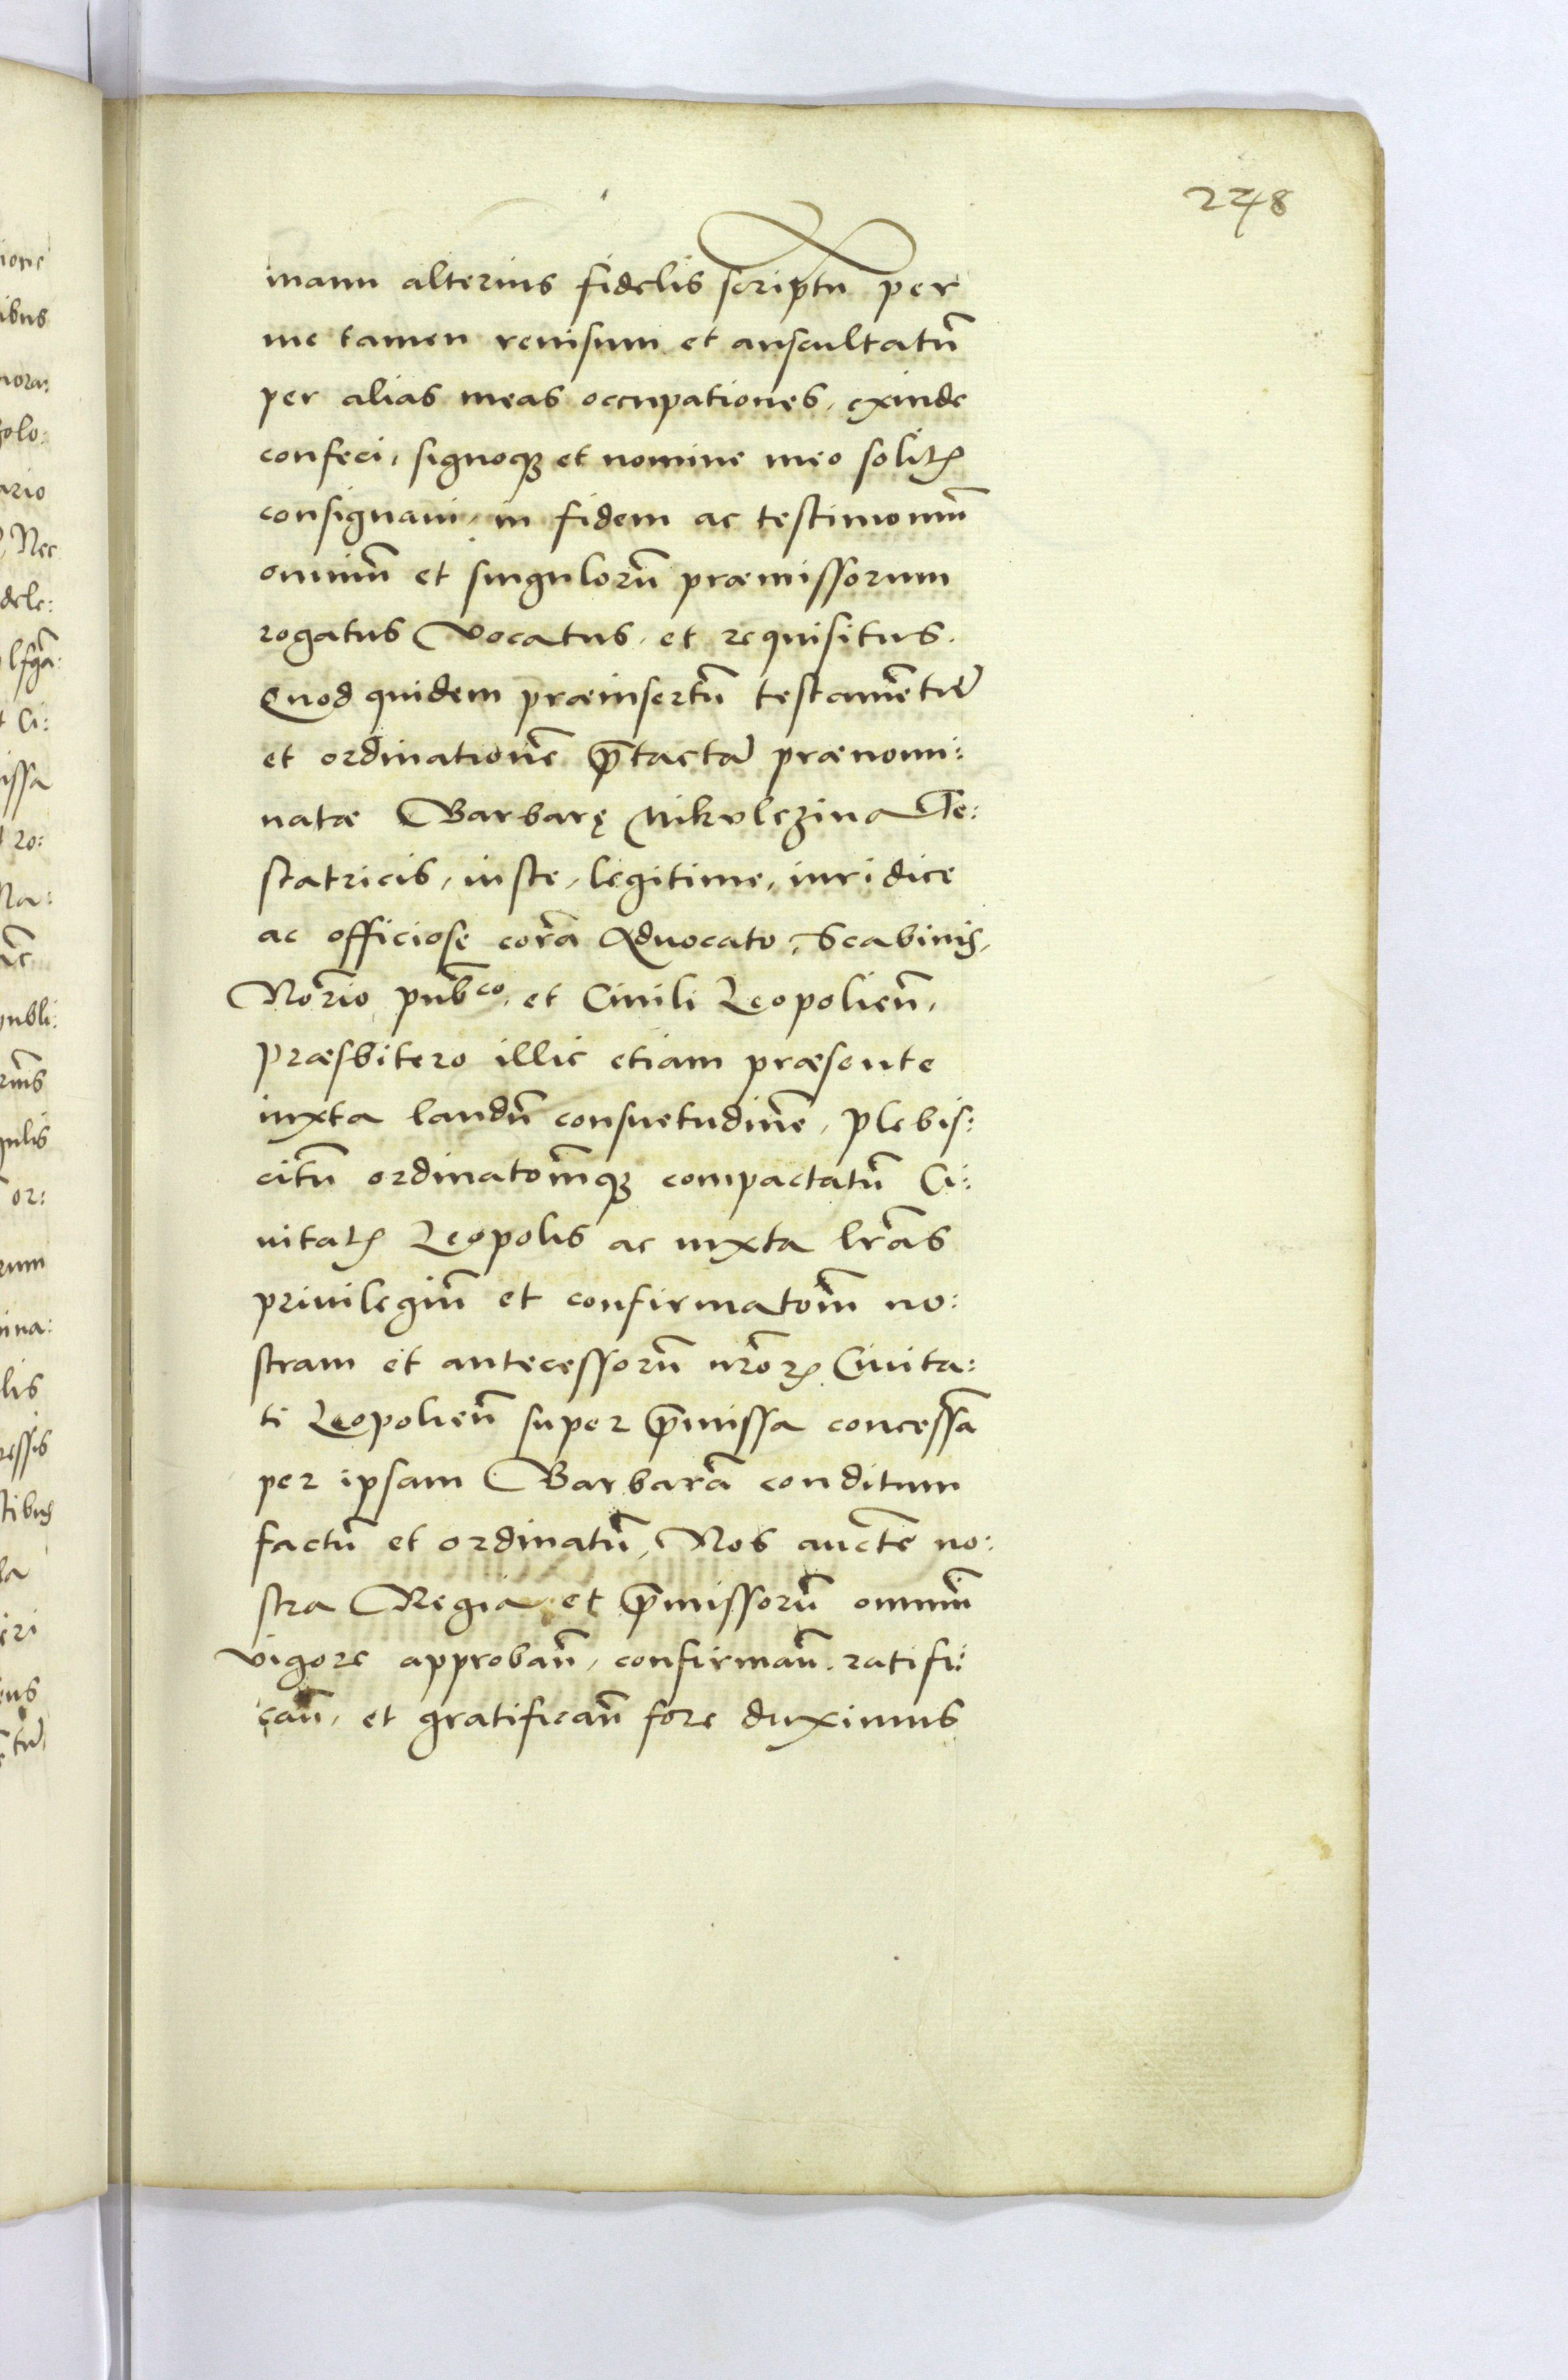 248
manu alterius fidelis scriptu per
me tamen reuisum et auscultatū
per alias meas occupationes, exinde
confeci, signoqꝫ et nomine meo solitꝭ
consignaui, in fidem ac testimoniū
omniū et singulorū præmissorum
rogatus vocatus, et requisitus.
Quod quidem præinsertū testamētū
et ordinationē p̄tactā prænomi:
natæ Barbarę Mikulczina Te:
statricis, iuste, legitime, iuridice
ac officiose corā Aduocato, Scabinis,
No͞rio pub͞co, et Ciuili Leopolien̄,
Præsbitero illic etiam præsente
iuxta laudū consuetudinē, plebis:
citū ordinato͞mqꝫ compactatū Ci:
uitatꝭ Leopolis ac iuxta lr̄as
priuilegiū et confirmato͞m no:
stram et antecessorū nr̄oꝝ Ciuita:
ti Leopolien̄ super p̄missa concessā
per ipsam Barbarā conditum
factū et ordinatū, Nos auct͞e no:
stra Regia et p̄missorū omniū
vigore approban̄, confirman̄, ratifi:
can̄, et gratifican̄ fore duximus